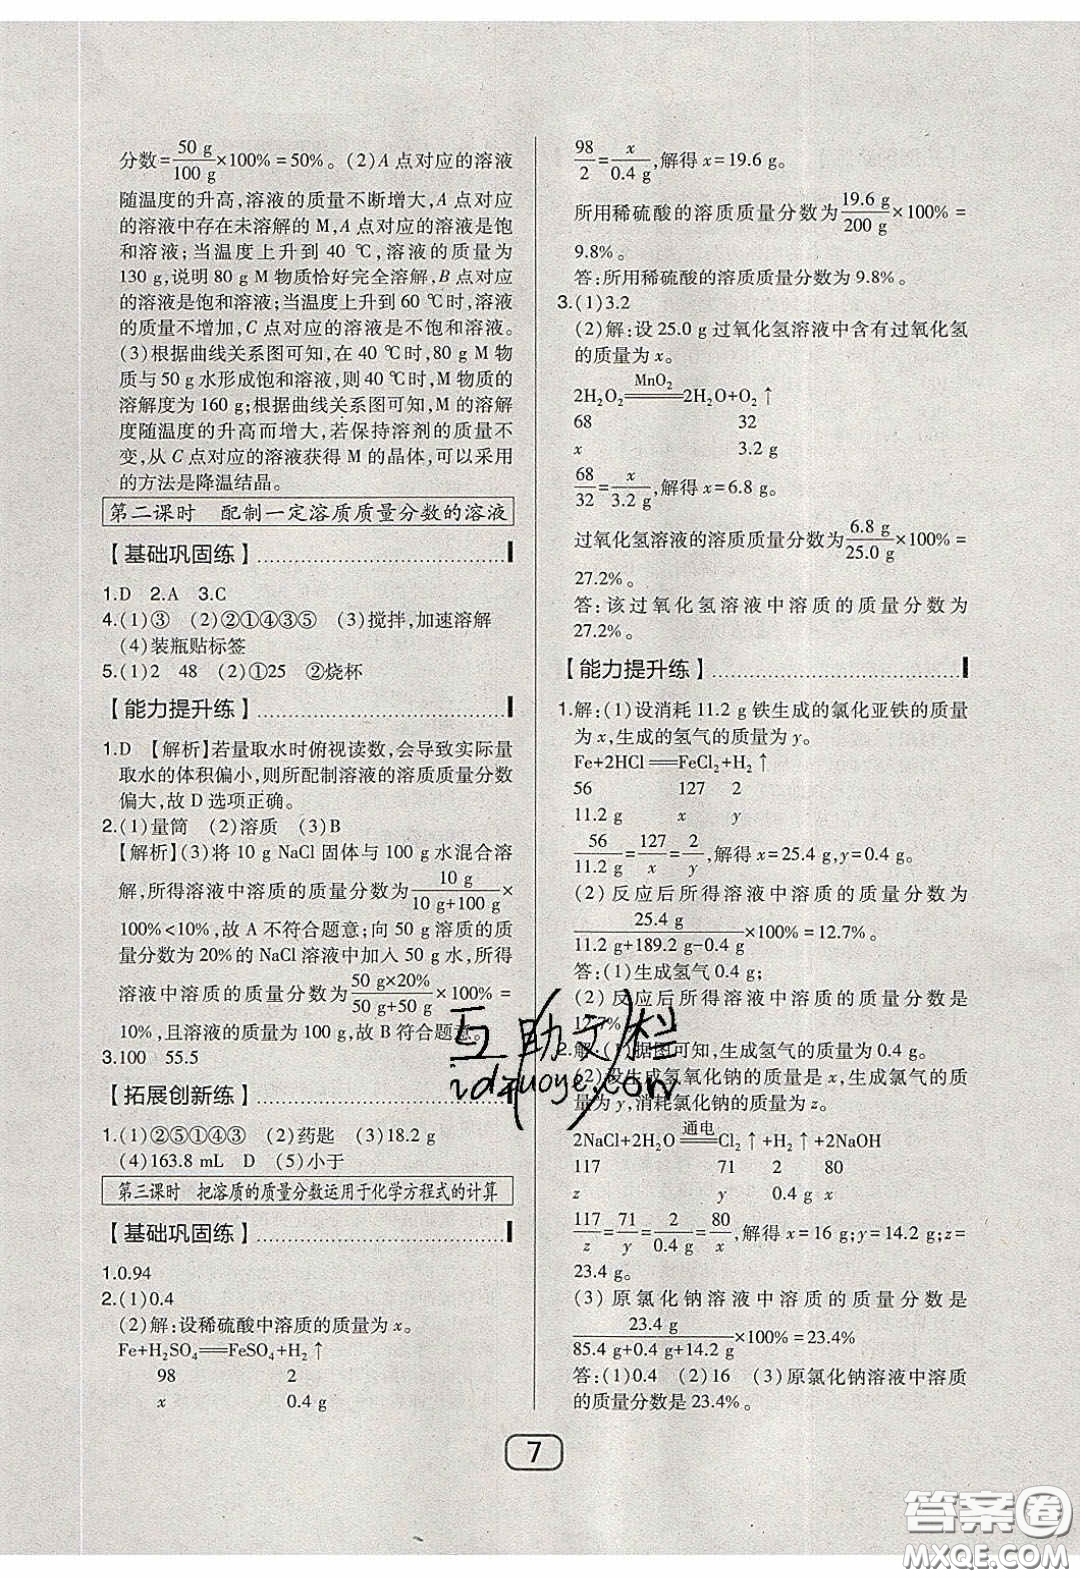 分数=50 g/100 g×100%=50%。(2)A 点对应的溶液
随温度的升高,溶液的质量不断增大,A 点对应
的溶液中存在未溶解的 M,A 点对应的溶液是饱
和溶液;当温度上升到 40 ℃,溶液的质量为
130 g,说明 80 g M 物质恰好完全溶解,B 点对应
的溶液是饱和溶液;当温度上升到 60 ℃时,溶液
的质量不增加,C 点对应的溶液是不饱和溶液。
(3)根据曲线关系图可知,在 40 ℃时,80 g M 物
质与 50 g 水形成饱和溶液,则 40 ℃时,M 物质的
溶解度为 160 g;根据曲线关系图可知,M 的溶解
度随温度的升高而增大,若保持溶剂的质量不
变,从 C 点对应的溶液获得 M 的晶体,可以采用
的方法是降温结晶。
第二课时 配制一定溶质质量分数的溶液
【基础巩固练】
1.D 2.A 3.C
4.(1)③ (2)②①④③⑤ (3)搅拌,加速溶解
(4)装瓶贴标签
5.(1)2 48 (2)①25 ②烧杯
【能力提升练】
1.D 【解析】若量取水时俯视读数,会导致实际量
取水的体积偏小,则所配制溶液的溶质质量分数
偏大,故 D 选项正确。
2.(1)量筒 (2)溶质 (3)B
【解析】(3)将 10 g NaCl 固体与 100 g 水混合溶
解,所得溶液中溶质的质量分数为10 g/10 g+100 g×
100%<10%,故 A 不符合题意;向 50 g 溶质的质
量分数为 20%的 NaCl 溶液中加入 50 g 水,所得
溶液中溶质的质量分数为50 g×20%/50 g+50 g×100%=
10%,且溶液的质量为 100 g,故 B 符合题意。
3.100 55.5
【拓展创新练】
1.(1)②⑤①④③ (2)药匙 (3)18.2 g
(4)163.8 mL D (5)小于
第三课时 把溶质的质量分数运用于化学方程式的计算
【基础巩固练】
1.0.94
2.(1)0.4
(2)解:设稀硫酸中溶质的质量为 x。
Fe+H₂SO₄══FeSO₄+H₂↑
98 2
x 0.4 g
98/2=x/0.4 g,解得 x=19.6 g。
所用稀硫酸的溶质质量分数为19.6 g/200 g×100%=
9.8%。
答:所用稀硫酸的溶质质量分数为 9.8%。
3.(1)3.2
(2)解:设 25.0 g 过氧化氢溶液中含有过氧化氢
的质量为 x。
2H₂O₂ MnO₂══ 2H₂O+O₂↑
68 32
x 3.2 g
68/32=x/3.2 g,解得 x=6.8 g。
过氧化氢溶液的溶质质量分数为6.8 g/25.0 g×100%=
27.2%。
答:该过氧化氢溶液中溶质的质量分数为
27.2%。
【能力提升练】
1.解:(1)设消耗 11.2 g 铁生成的氯化亚铁的质量
为 x,生成的氢气的质量为 y。
Fe+2HCl══FeCl₂+H₂↑
56 127 2
11.2 g x y
56/11.2 g=127/x=2/y,解得 x=25.4 g,y=0.4 g。
(2)反应后所得溶液中溶质的质量分数为
25.4 g/11.2 g+189.2 g-0.4 g×100%=12.7%。
答:(1)生成氢气 0.4 g;
(2)反应后所得溶液中溶质的质量分数是
12.7%。
2.解:(1)据图可知,生成氢气的质量为 0.4 g。
(2)设生成氢氧化钠的质量是 x,生成氯气的质
量为 y,消耗氯化钠的质量为 z。
2NaCl+2H₂O 通电══ Cl₂↑+H₂↑+2NaOH
117 71 2 80
z y 0.4 g x
117/z=71/y=2/0.4 g=80/x,解得 x=16 g;y=14.2 g;z=
23.4 g。
(3)原氯化钠溶液中溶质的质量分数是
23.4 g/85.4 g+0.4 g+14.2 g×100%=23.4%
答:(1)0.4 (2)16 (3)原氯化钠溶液中溶质
的质量分数是 23.4%。
7
互助文栏
idzuoye.com
答案圈
MXQE.COM